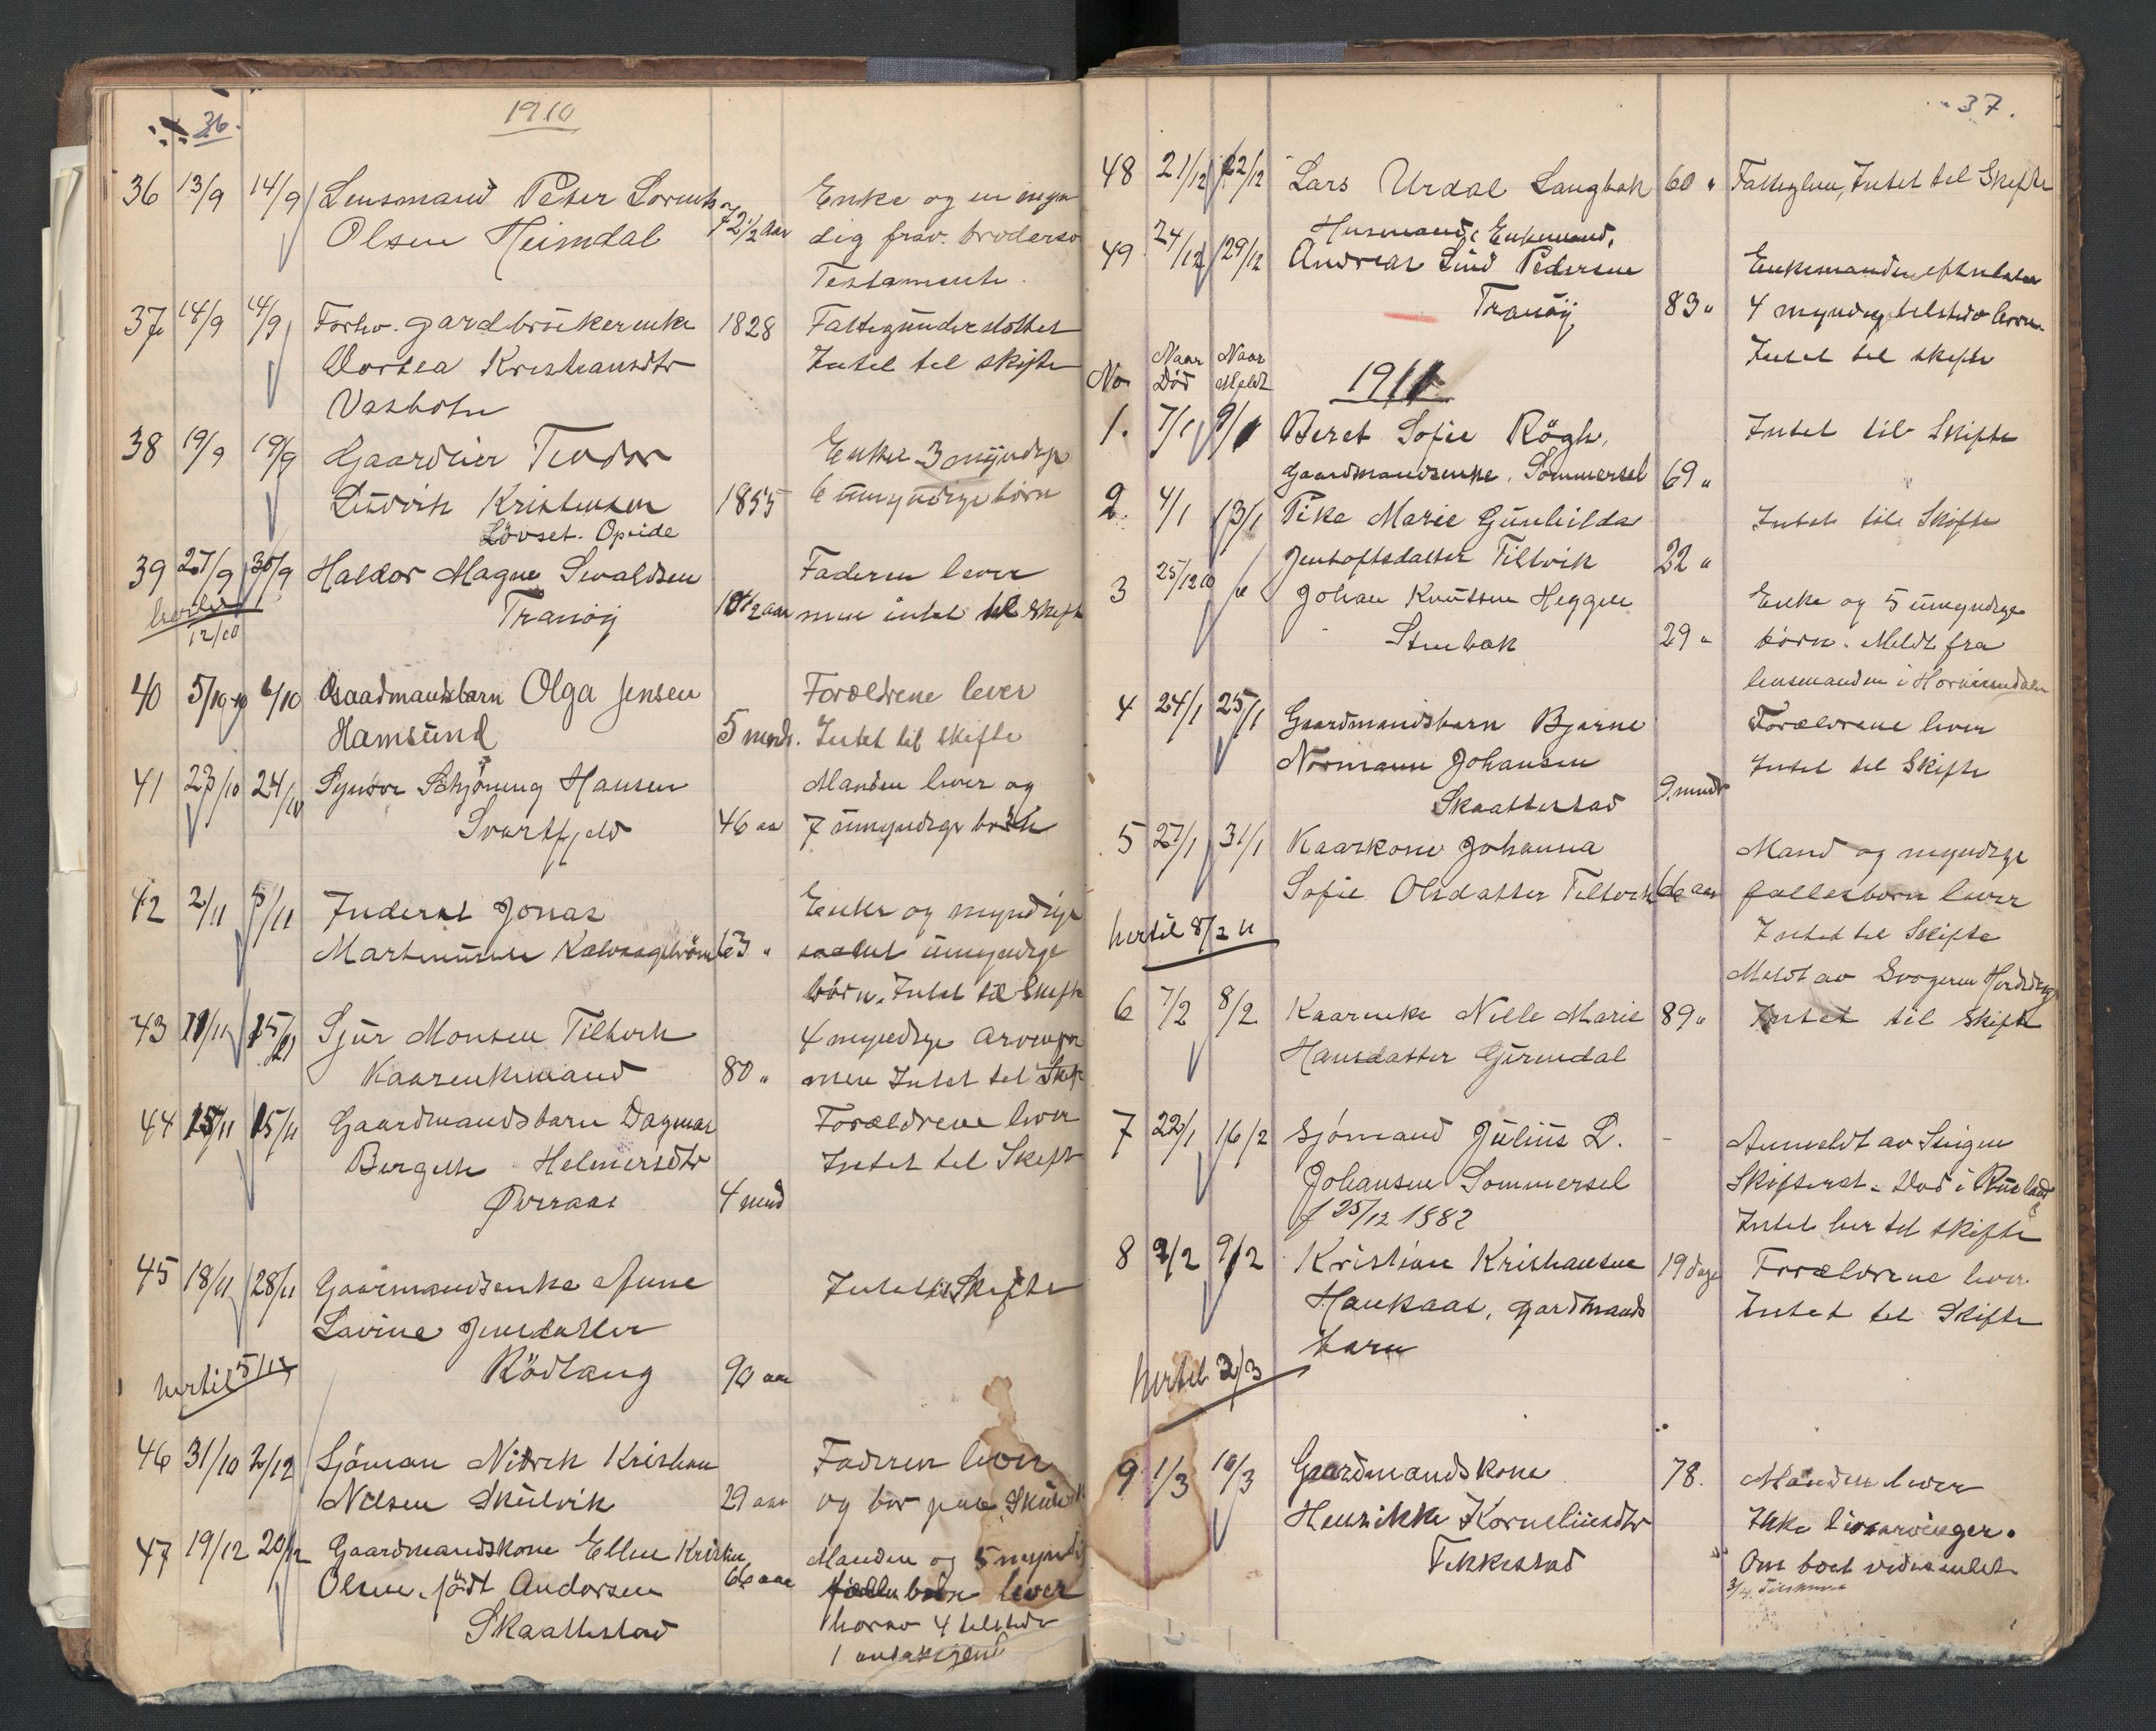 36.
1910
36 13/9 14/9 Lensmand Peter Lorents Enke og en myn
Olsen Heimdal 72 1/2 aar dig frav. brodersø
Testamente.
37 14/9 14/9 Forhv. gardbrukerenke 1828 Fattigunderstøttet
Dortea Kristiansdtr Intet til skifte
Vasbotn
38 19/9 19/9 Gaardeier Teodor Enke 3 myndige
Ludvik Kristensen 1855 6 umyndige børn
Løvset. Opeide
39 27/9 30/9 Haldor Magne Sivaldsen Faderen lever
Tranøy 10 1/2 aar men intet til skifte
hertil 12/10
40 5/10 6/10 Gaardmandsbarn Olga Jensen Forældrene lever
Hamsund 5 mndr. Intet til skifte
41 23/10 24/10 Synøve Schjøning Hansen Manden lever og
Svartfjeld 46 aa 7 umyndige børn
42 2/11 5/11 Inderst Jonas Enke og myndige
Martinusen 63 " samt umyndige
børn. Intet til Skifte
43 11/11 15/11 Sjur Monsen Tiltvik 4 myndige
Kaarenkemand 80 " men Intet til Skif
44 15/11 15/11 Gaardmandsbarn Dagmar Forældrene lever
Bergith Helmersdtr Intet til Skift
Ørraas 4 mnd
45 18/11 28/11 Gaarmandsenke Anne Intet til Skifte
Lovine Jensdatter
Rödtang 90 aar
hertil 5/12
46 31/10 2/12 Sjöman Nidrik Kristian Faderen lever
Nilsen Skulvik 29 aar og bor paa Skulvik
47 19/12 20/12 Gaardmandskone Ellen Kristin Manden og 5 myndi
Olsen, födt Andorsen 66 aar fælles børn lever
Skaattestad horav 4 tilstede
1
37.
48 21/12 22/12 Lars Urdal Langbak 60 " Fattiglem, Intet til Skifte
Husmand, Enkemand.
49 24/12 29/12 Andreas Lind Pedersen Enkemanden efterlater
Tranøy 83 " 4 myndig tilstede børn.
Intet til skifte
No Naar Død Naar Meldt 1911
1. 7/1 9/1 Beret Sofie Rögh. Intet til Skifte
Gaardmandsenke. Sommersel 69 "
2. 4/1 13/1 Pike Marie Gunhilda Intet til Skifte
Jentoftsdatter Tiltvik 22 "
3 25/12 10 Johan Knutsen Heggen Enke og 5 umyndige
Stenbak 29 " børn. Meldt fra
lensmanden i Hornindalen
4 24/1 25/1 Gaardmandsbarn Bjarne Forældrene lever
Normann Johansen Intet til Skifte
Skaattestad 9. mndr
5 27/1 31/1 Kaarkone Johanna Mand og myndige
Sofie Olsdatter Tiltvik 66 aar fællesbørn lever
hertil 8/2 11 Intet til Skifte
Meldt av Svogeren
6 7/2 8/2 Kaarenke Nille Marie 89 " Intet til Skifte
Hansdatter Gjerendal
7 22/1 16/2 Sjömand Julius L. - Anmeldt av Senjen
Johansen Sommersel Skifteret. Död i Rusland
f 25/12 1882 Intet her til skifte
8 9/2 9/2 Kristian Kristiansen 19 dage Forældrene lever
Haukaas, gardmands Intet til Skifte
barn
hertil 2/3
9 1/3 16/3 Gaardmandskone 78. Manden lever
Henrikke Korneliusdtr Ikke livsarvinger.
Tekkestad Om boet vides intet